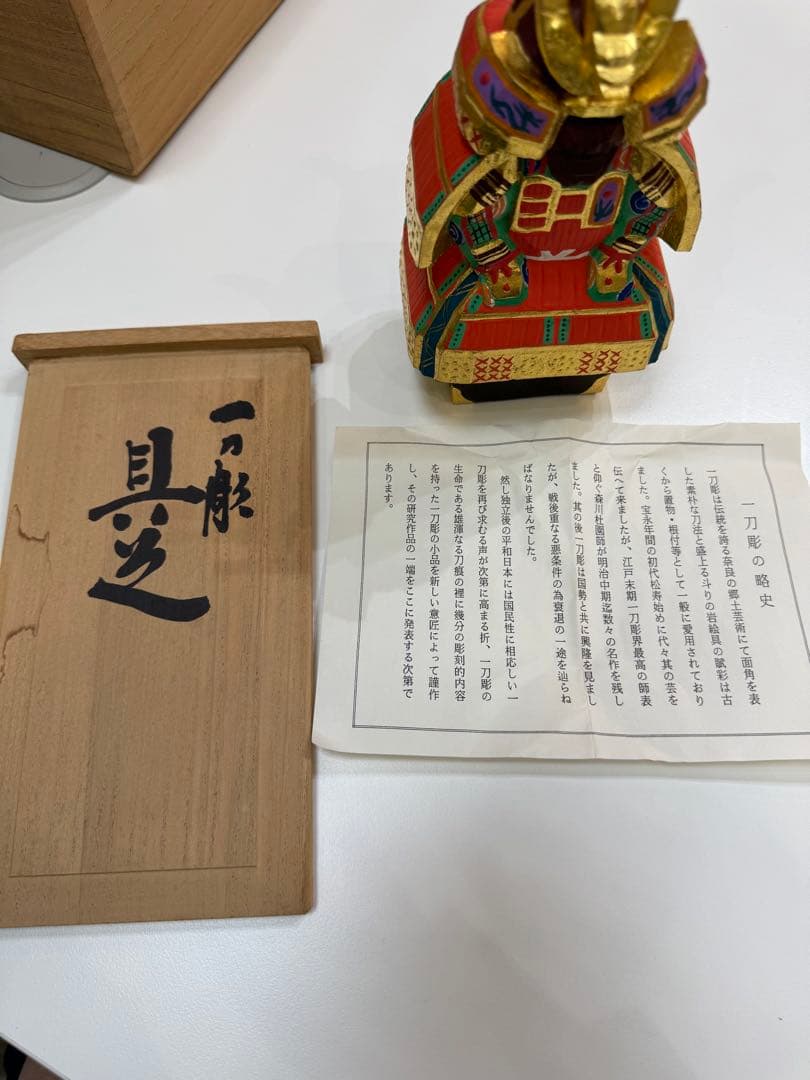 一刀彫
具足
一刀彫の略史
一刀彫は伝統を誇る奈良の郷土芸術にて面角を表
した素朴な刀法と盛上る斗りの岩絵具の賦彩は古
くから置物・根付等として一般に愛用されており
ました。宝永年間の初代松寿始めに代々其の芸を
伝へて来ましたが、江戸末期一刀彫界最高の師表
と仰ぐ森川杜園師が明治中期迄数々の名作を残し
ました。其の後一刀彫は国勢と共に興隆を見まし
たが、戦後重なる悪条件の為衰退の一途を辿らね
ばなりませんでした。
然し独立後の平和日本には国民性に相応しい一
刀彫を再び求むる声が次第に高まる折、一刀彫の
生命である雄渾なる刀痕の裡に幾分の彫刻的内容
を持った一刀彫の小品を新しい意匠によって謹作
し、その研究作品の一端をここに発表する次第で
あります。